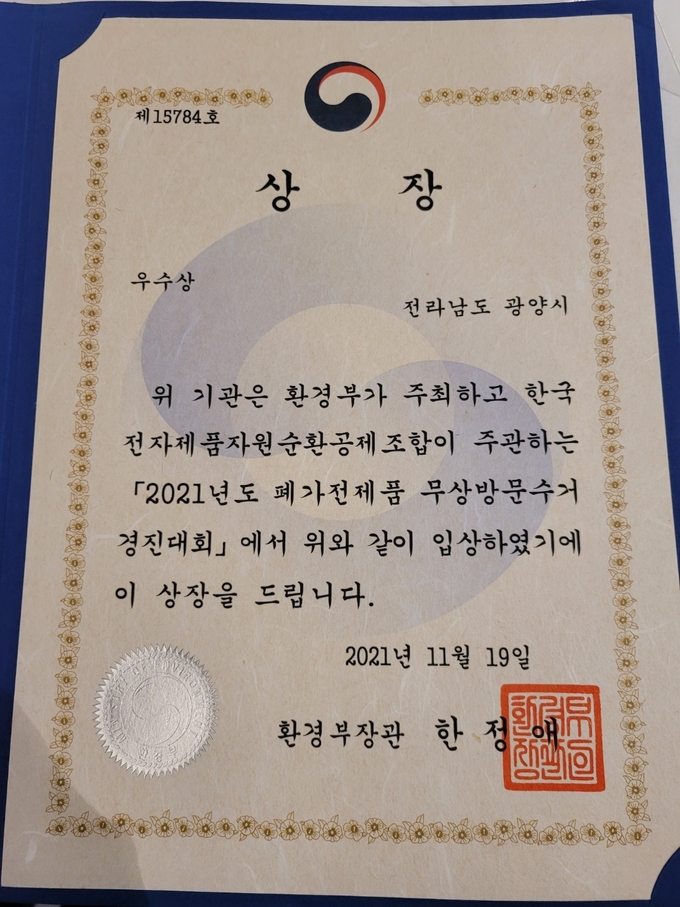 제15784호
상 장
우수상
전라남도 광양시
위 기관은 환경부가 주최하고 한국
전자제품자원순환공제조합이 주관하는
「2021년도 폐가전제품 무상방문수거
경진대회」에서 위와 같이 입상하였기에
이 상장을 드립니다.
2021년 11월 19일
환경부장관 한정애